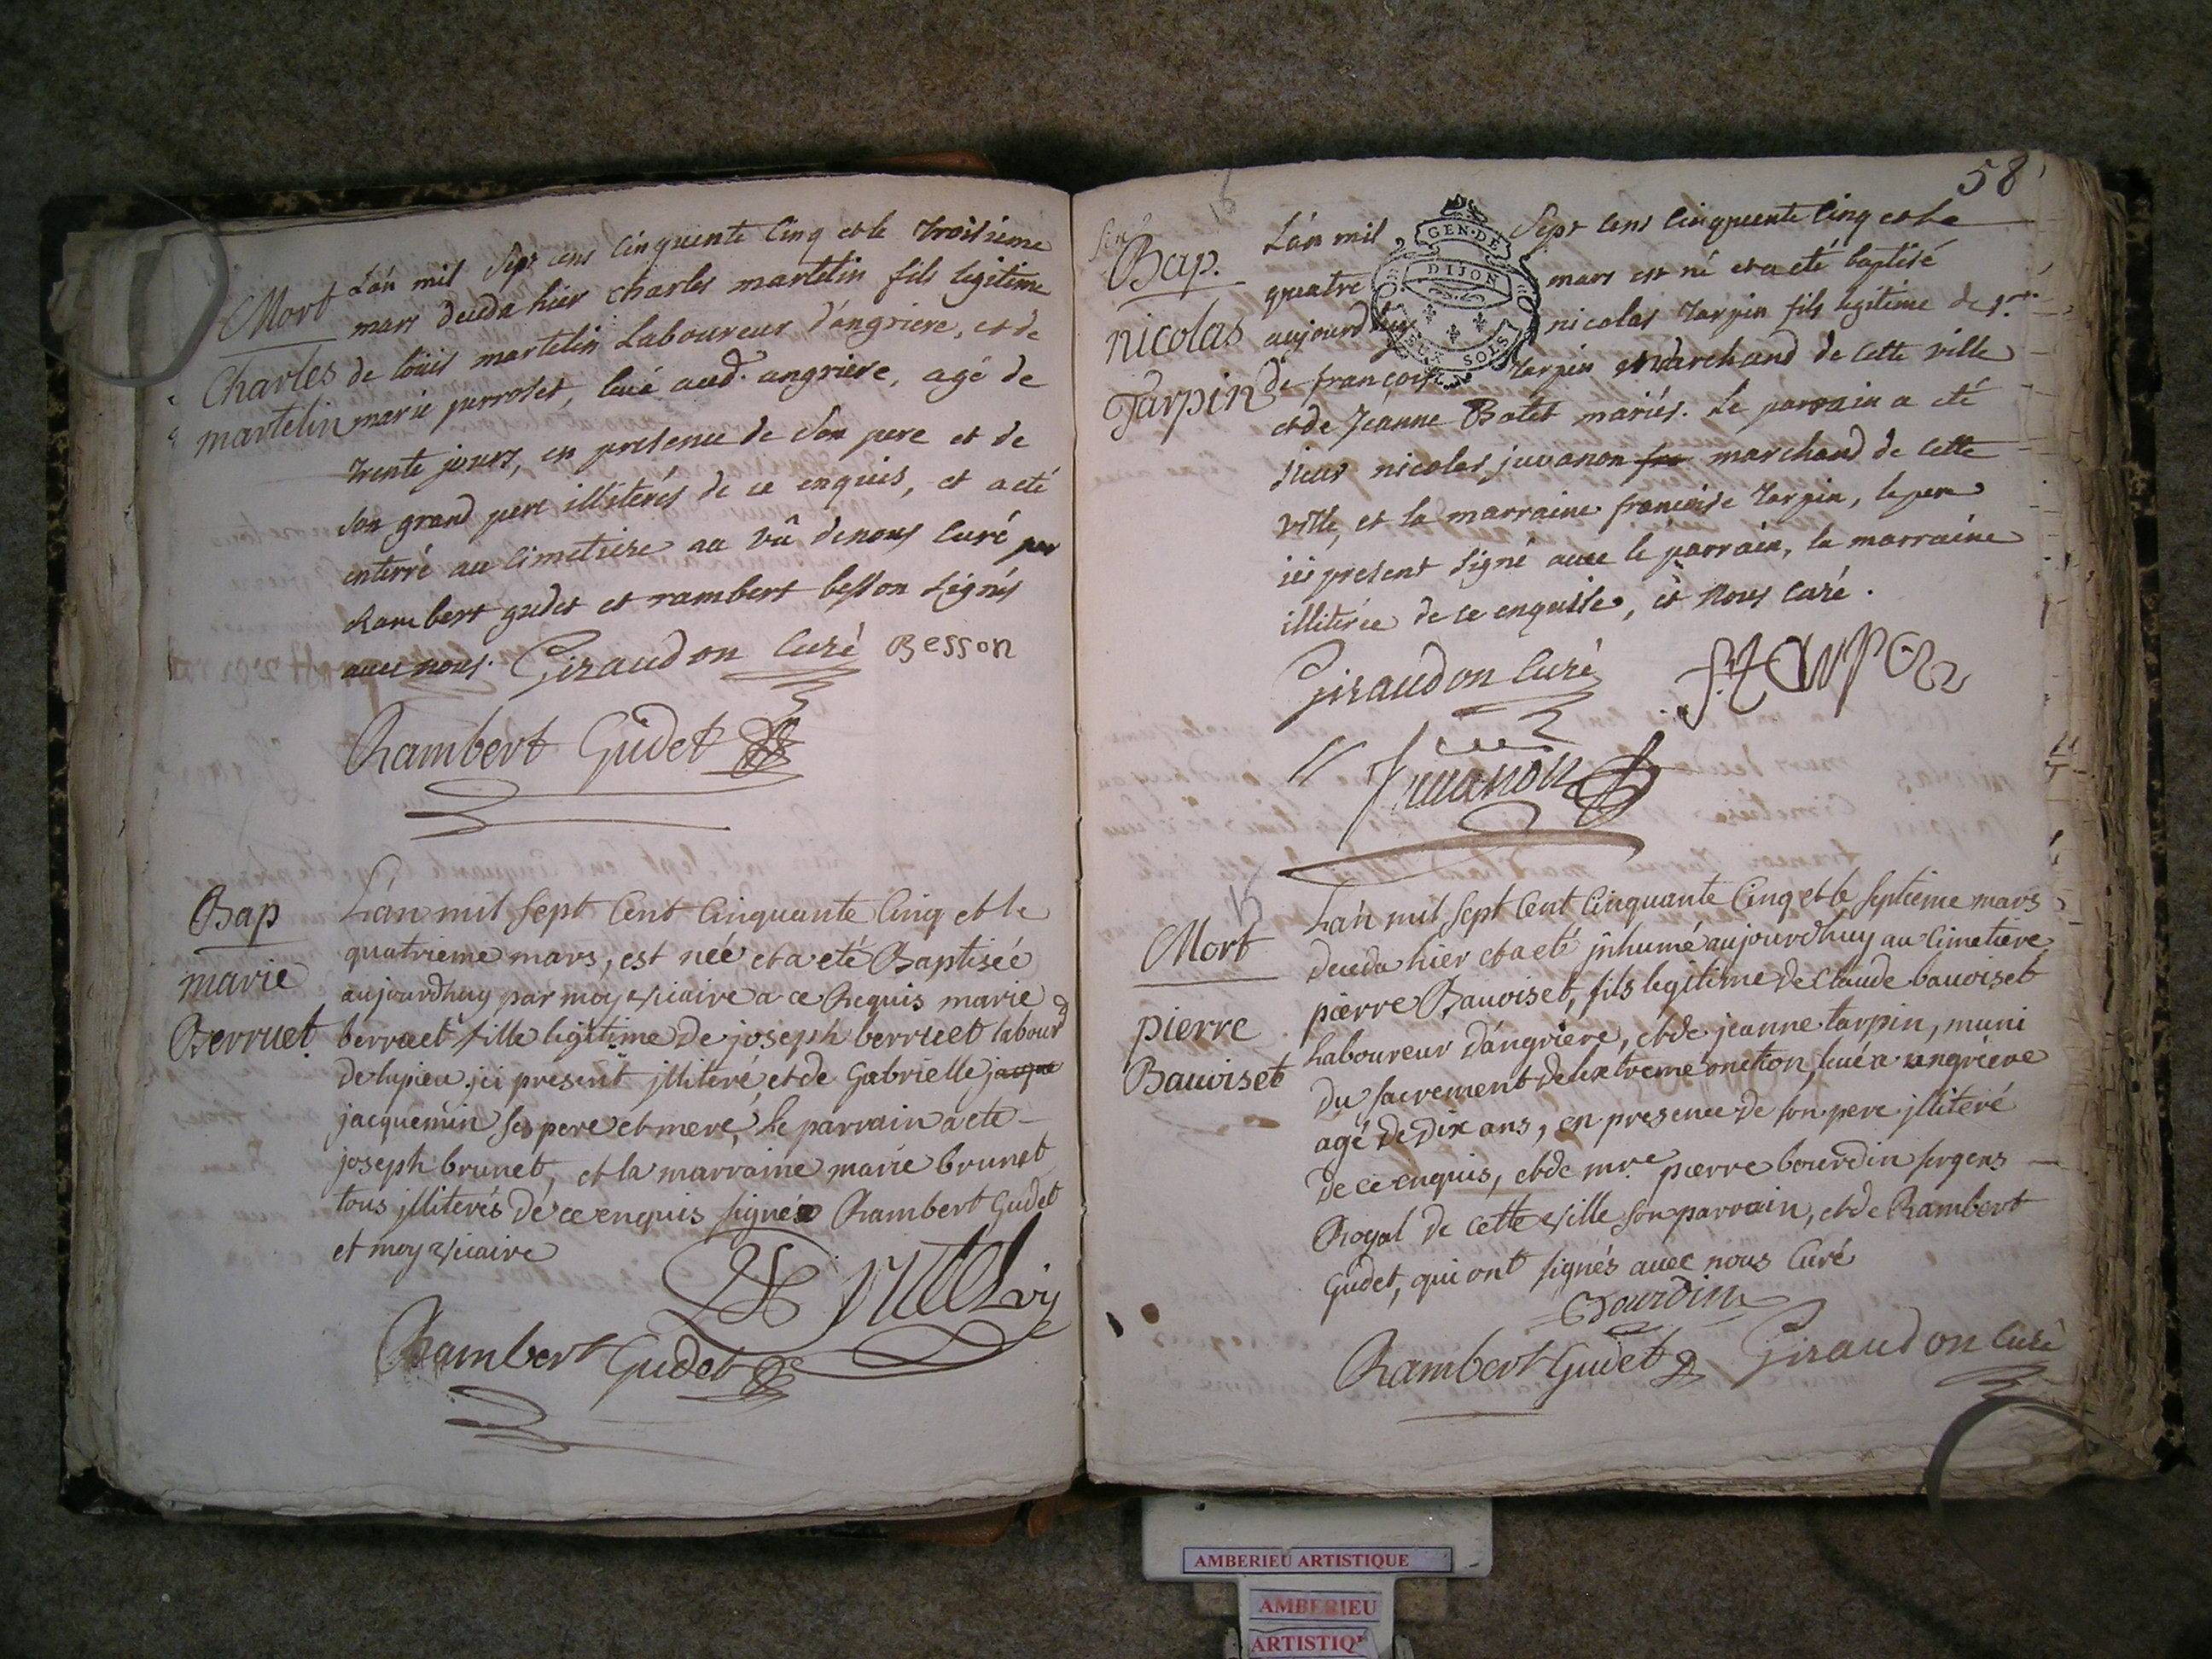 Mort
Charles
martelin
L'an mil Sept cens Cinquente Cinq et le troisième
mars deceda hier charles martelin fils legitime
de loüis martelin Laboureur d'angriere, et de
marie perrolet, leué aud. angriere, agé de
trente jours, en presence de Son pere et de
Son grand pere illiterés de ce enquis, et a eté
enterré au Cimetiere au vû de nous Curé par
Rambert gudet et rambert besson signés
avec nous. Giraudon Curé Besson
Rambert Gudet
Bap
marie
Berruet.
L'an mil sept Cent Cinquante Cinq et le
quatrieme mars, est neé et a eté Baptiseé
aujourdhuy par moy vicaire a ce Requis marie
berruet fille legitime de joseph berruet labour
de lupieu jci present jlliteré, et de Gabrielle jacque
jacquemin ses pere et mere, Le parrain a ete
joseph brunet, et la marraine marie brunet
tous jlliterés de ce enquis signés Rambert Gudet
et moy vicaire
Rambert Gudet
58
Bap.
nicolas
Tarpin
L'an mil Sept cens Cinquente Cinq et Le
quatre mars est né et a eté baptisé
aujourdhuy nicolas tarpin fils legitime de
de françois tarpin marchand de Cette ville
et de Jeanne Botet mariés. Le parrain a eté
sieur nicolas juvanon marchand de Cette
ville, et la marraine françoise tarpin, le pere
ici present signé avec le parrain, la marraine
illiterée de ce enquise, et Nous Curé.
GEN. DE
DIJON
DEUX SOLS
Giraudon Curé
Juuanon
Mort
pierre
Bauoiset
L'an mil sept Cent Cinquante Cinq et le septieme mars
deceda hier et a eté jnhumé aujourdhuy au Cimetiere
pierre Bauoiset, fils legitime de Claude bauoiset
Laboureur d'angriere, et de jeanne tarpin, muni
du sacrement de lextreme onction, leué a angriere
agé de dix ans, en presence de son pere jlliteré
de ce enquis, et de mre pierre bourdin sergens
Royal de Cette ville son parrain, et de Rambert
Gudet, qui ont signés avec nous Curé
Bourdin
Rambert Gudet Giraudon Curé
AMBERIEU ARTISTIQUE
AMBERIEU
ARTISTIQ